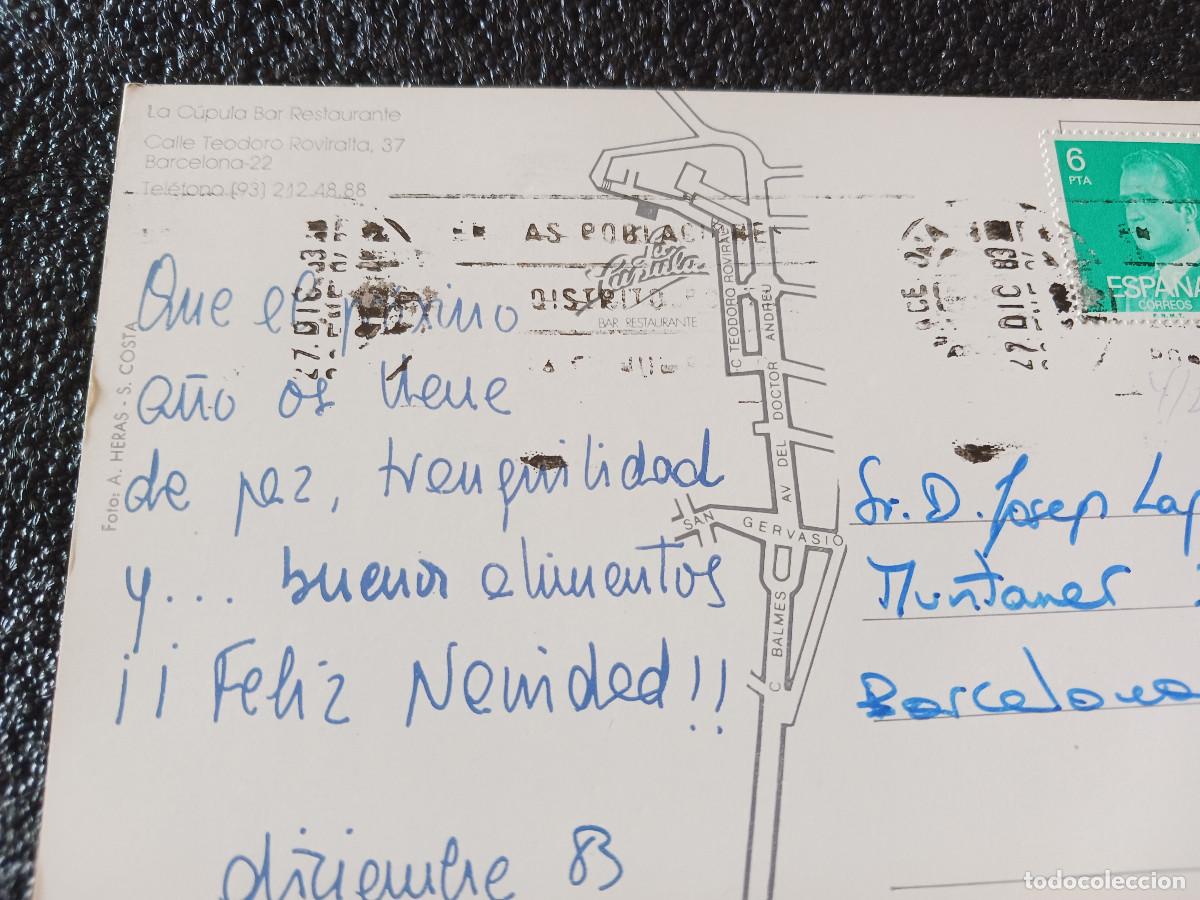 La Cúpula Bar Restaurante
Calle Teodoro Roviralta, 37
Barcelona-22
Teléfono (93) 212.48.88
Foto: A. HERAS - S. COSTA
Que el próximo
año os llene
de paz, tranquilidad
y... buenos alimentos
¡¡ Feliz Navidad!!
diciembre 83
AS POBLACIONE
DISTRITO
27. DIC 83
La Cúpula
BAR RESTAURANTE
C TEODORO ROVIRALTA
AV DEL DOCTOR ANDREU
SAN GERVASIO
C BALMES
27. DIC 83
6
PTA
ESPAÑA
CORREOS
F.N.M.T.
Sr. D. Josep
Muntaner
Barcelona
todocoleccion